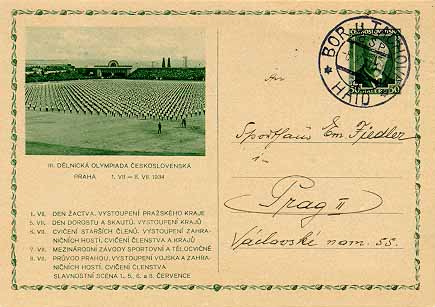 III. DĚLNICKÁ OLYMPIADA ČESKOSLOVENSKÁ
PRAHA 1. VII – 8. VII 1934
1. VII. DEN ŽACTVA. VYSTOUPENÍ PRAŽSKÉHO KRAJE
5. VII. DEN DOROSTU A SKAUTŮ. VYSTOUPENÍ KRAJŮ
6. VII. CVIČENÍ STARŠÍCH ČLENŮ. VYSTOUPENÍ ZAHRA-
NIČNÍCH HOSTÍ. CVIČENÍ ČLENSTVA A KRAJŮ
7. VII. MEZINÁRODNÍ ZÁVODY SPORTOVNÍ A TĚLOCVIČNÉ
8. VII. PRŮVOD PRAHOU. VYSTOUPENÍ VOJSKA A ZAHRA-
NIČNÍCH HOSTÍ. CVIČENÍ ČLENSTVA
SLAVNOSTNÍ SCÉNA 1., 5., 6. a 8. ČERVENCE
BOR U TACHOVA
HAID
ČESKOSLOVENSKO
50 HALÉŘŮ 50
An
Sporthaus Em. Fiedler
in
Prag II
Václavské nam. 55.